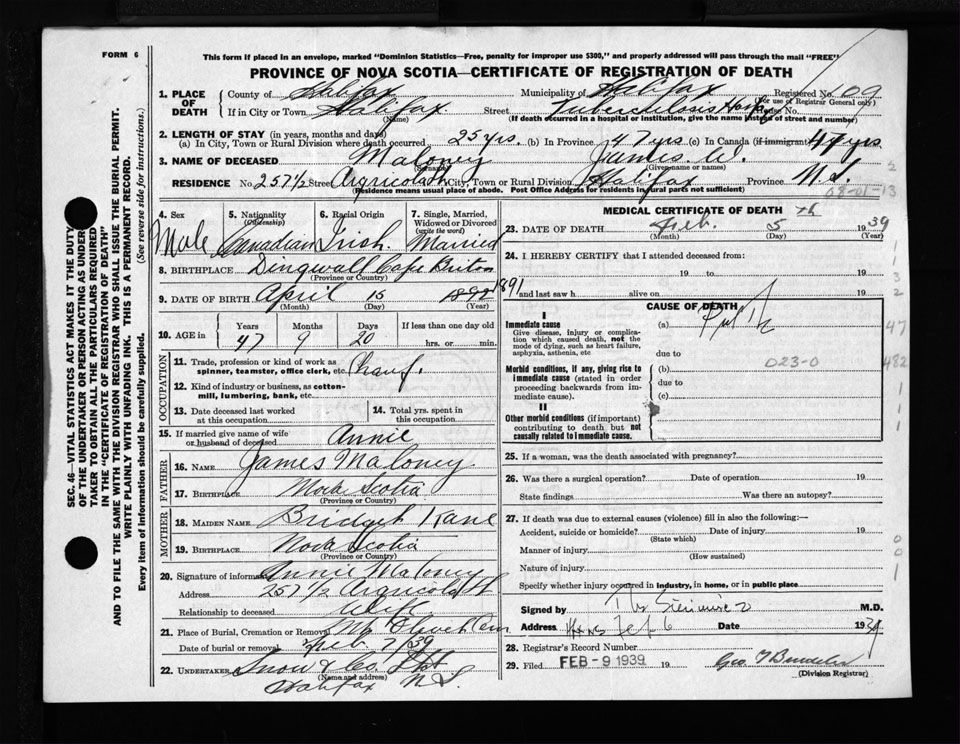 FORM 6
This form if placed in an envelope, marked "Dominion Statistics—Free, penalty for improper use $300," and properly addressed will pass through the mail "FREE"
PROVINCE OF NOVA SCOTIA—CERTIFICATE OF REGISTRATION OF DEATH
SEC. 46—VITAL STATISTICS ACT MAKES IT THE DUTY
OF THE UNDERTAKER OR PERSON ACTING AS UNDER-
TAKER TO OBTAIN ALL THE PARTICULARS REQUIRED
IN THE "CERTIFICATE OF REGISTRATION OF DEATH"
AND TO FILE THE SAME WITH THE DIVISION REGISTRAR WHO SHALL ISSUE THE BURIAL PERMIT.
WRITE PLAINLY WITH UNFADING INK. THIS IS A PERMANENT RECORD.
Every item of Information should be carefully supplied. (See reverse side for instructions.)
1. PLACE OF DEATH County of Halifax Municipality of Halifax Registered No. 109
(For use of Registrar General only)
If in City or Town Halifax Street Tuberculosis Hosp House No.
(Name) (If death occurred in a hospital or institution, give the name instead of street and number)
2. LENGTH OF STAY (in years, months and days)
(a) In City, Town or Rural Division where death occurred 25 yrs. (b) In Province 47 yrs (c) In Canada (if immigrant) 47 yrs
3. NAME OF DECEASED Maloney James W.
(Surname) (Given name or names)
RESIDENCE No. 257 1/2 Street Agricola St City, Town or Rural Division Halifax Province N.S.
(Residence means usual place of abode. Post Office Address for residents in rural parts not sufficient)
08-01-13
4. Sex Male
5. Nationality (Citizenship) Canadian
6. Racial Origin Irish
7. Single, Married, Widowed or Divorced (write the word) Married
8. BIRTHPLACE Dingwall Cape Briton
(Province or Country)
9. DATE OF BIRTH April 15 1892 1891
(Month) (Day) (Year)
10. AGE in Years Months Days If less than one day
47 9 20 hrs. or min.
OCCUPATION
11. Trade, profession or kind of work as spinner, teamster, office clerk, etc. Chauf.
12. Kind of industry or business, as cotton-mill, lumbering, bank, etc.
13. Date deceased last worked at this occupation
14. Total yrs. spent in this occupation
15. If married give name of wife or husband of deceased Annie
FATHER
16. NAME James Maloney
17. BIRTHPLACE Nova Scotia
(Province or Country)
MOTHER
18. MAIDEN NAME Bridget Kane
19. BIRTHPLACE Nova Scotia
(Province or Country)
20. Signature of informant Annie Maloney
Address 257 1/2 Agricola St
Relationship to deceased Wife
21. Place of Burial, Cremation or Removal Mt Olivet Cem
Date of burial or removal Feb. 7/39
22. UNDERTAKER Snow & Co. Ltd
(Name and address)
Halifax N.S.
MEDICAL CERTIFICATE OF DEATH
23. DATE OF DEATH Feb. 5th 1939
(Month) (Day) (Year)
24. I HEREBY CERTIFY that I attended deceased from:
19 to 19
and last saw h alive on 19
CAUSE OF DEATH
I
Immediate cause
Give disease, injury or complication which caused death, not the mode of dying, such as heart failure, asphyxia, asthenia, etc
(a) Pul Tb
due to
Morbid conditions, if any, giving rise to immediate cause (stated in order proceeding backwards from immediate cause).
(b) 023-0
due to
(c)
II
Other morbid conditions (if important) contributing to death but not causally related to immediate cause.
25. If a woman, was the death associated with pregnancy?
26. Was there a surgical operation? Date of operation 19
State findings Was there an autopsy?
27. If death was due to external causes (violence) fill in also the following:—
Accident, suicide or homicide? Date of injury 19
(State which)
Manner of injury
(How sustained)
Nature of injury
Specify whether injury occurred in industry, in home, or in public place
Signed by M.D.
Address Feb 6 Date 1939
28. Registrar's Record Number
29. Filed FEB - 9 1939 19 Geo
(Division Registrar)
2
1
3
2
47
482
1
1
1
0
0
1